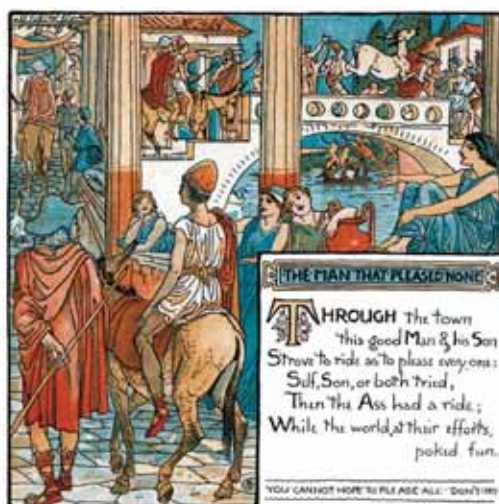 THE MAN THAT PLEASED NONE
THROUGH the town
this good Man & his Son
Strove to ride as to please everyone:
Self, Son, or both tried,
Then the Ass had a ride;
While the world, at their efforts,
poked fun.
YOU CANNOT HOPE TO PLEASE ALL · DON'T TRY